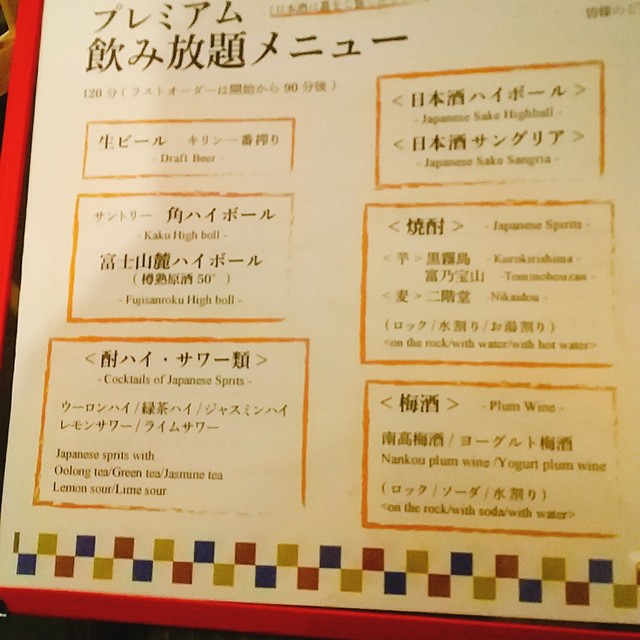 プレミアム
飲み放題メニュー
120分(ラストオーダーは開始から90分後)
生ビール キリン一番搾り
- Draft Beer -
サントリー 角ハイボール
- Kaku High boll -
富士山麓ハイボール
(樽熟原酒50°)
- Fujisanroku High boll -
<酎ハイ・サワー類>
- Cocktails of Japanese Sprits -
ウーロンハイ/緑茶ハイ/ジャスミンハイ
レモンサワー/ライムサワー
Japanese sprits with
Oolong tea/Green tea/Jasmine tea
Lemon sour/Lime sour
<日本酒ハイボール>
- Japanese Sake Highball -
<日本酒サングリア>
- Japanese Sake Sangria -
<焼酎> - Japanese Spirits -
<芋> 黒霧島 - Kurokirishima -
富乃宝山 - Tominohouzan -
<麦> 二階堂 - Nikaidou -
(ロック/水割り/お湯割り)
<on the rock/with water/with hot water>
<梅酒> - Plum Wine -
南高梅酒/ヨーグルト梅酒
Nankou plum wine /Yogurt plum wine
(ロック/ソーダ/水割り)
<on the rock/with soda/with water>